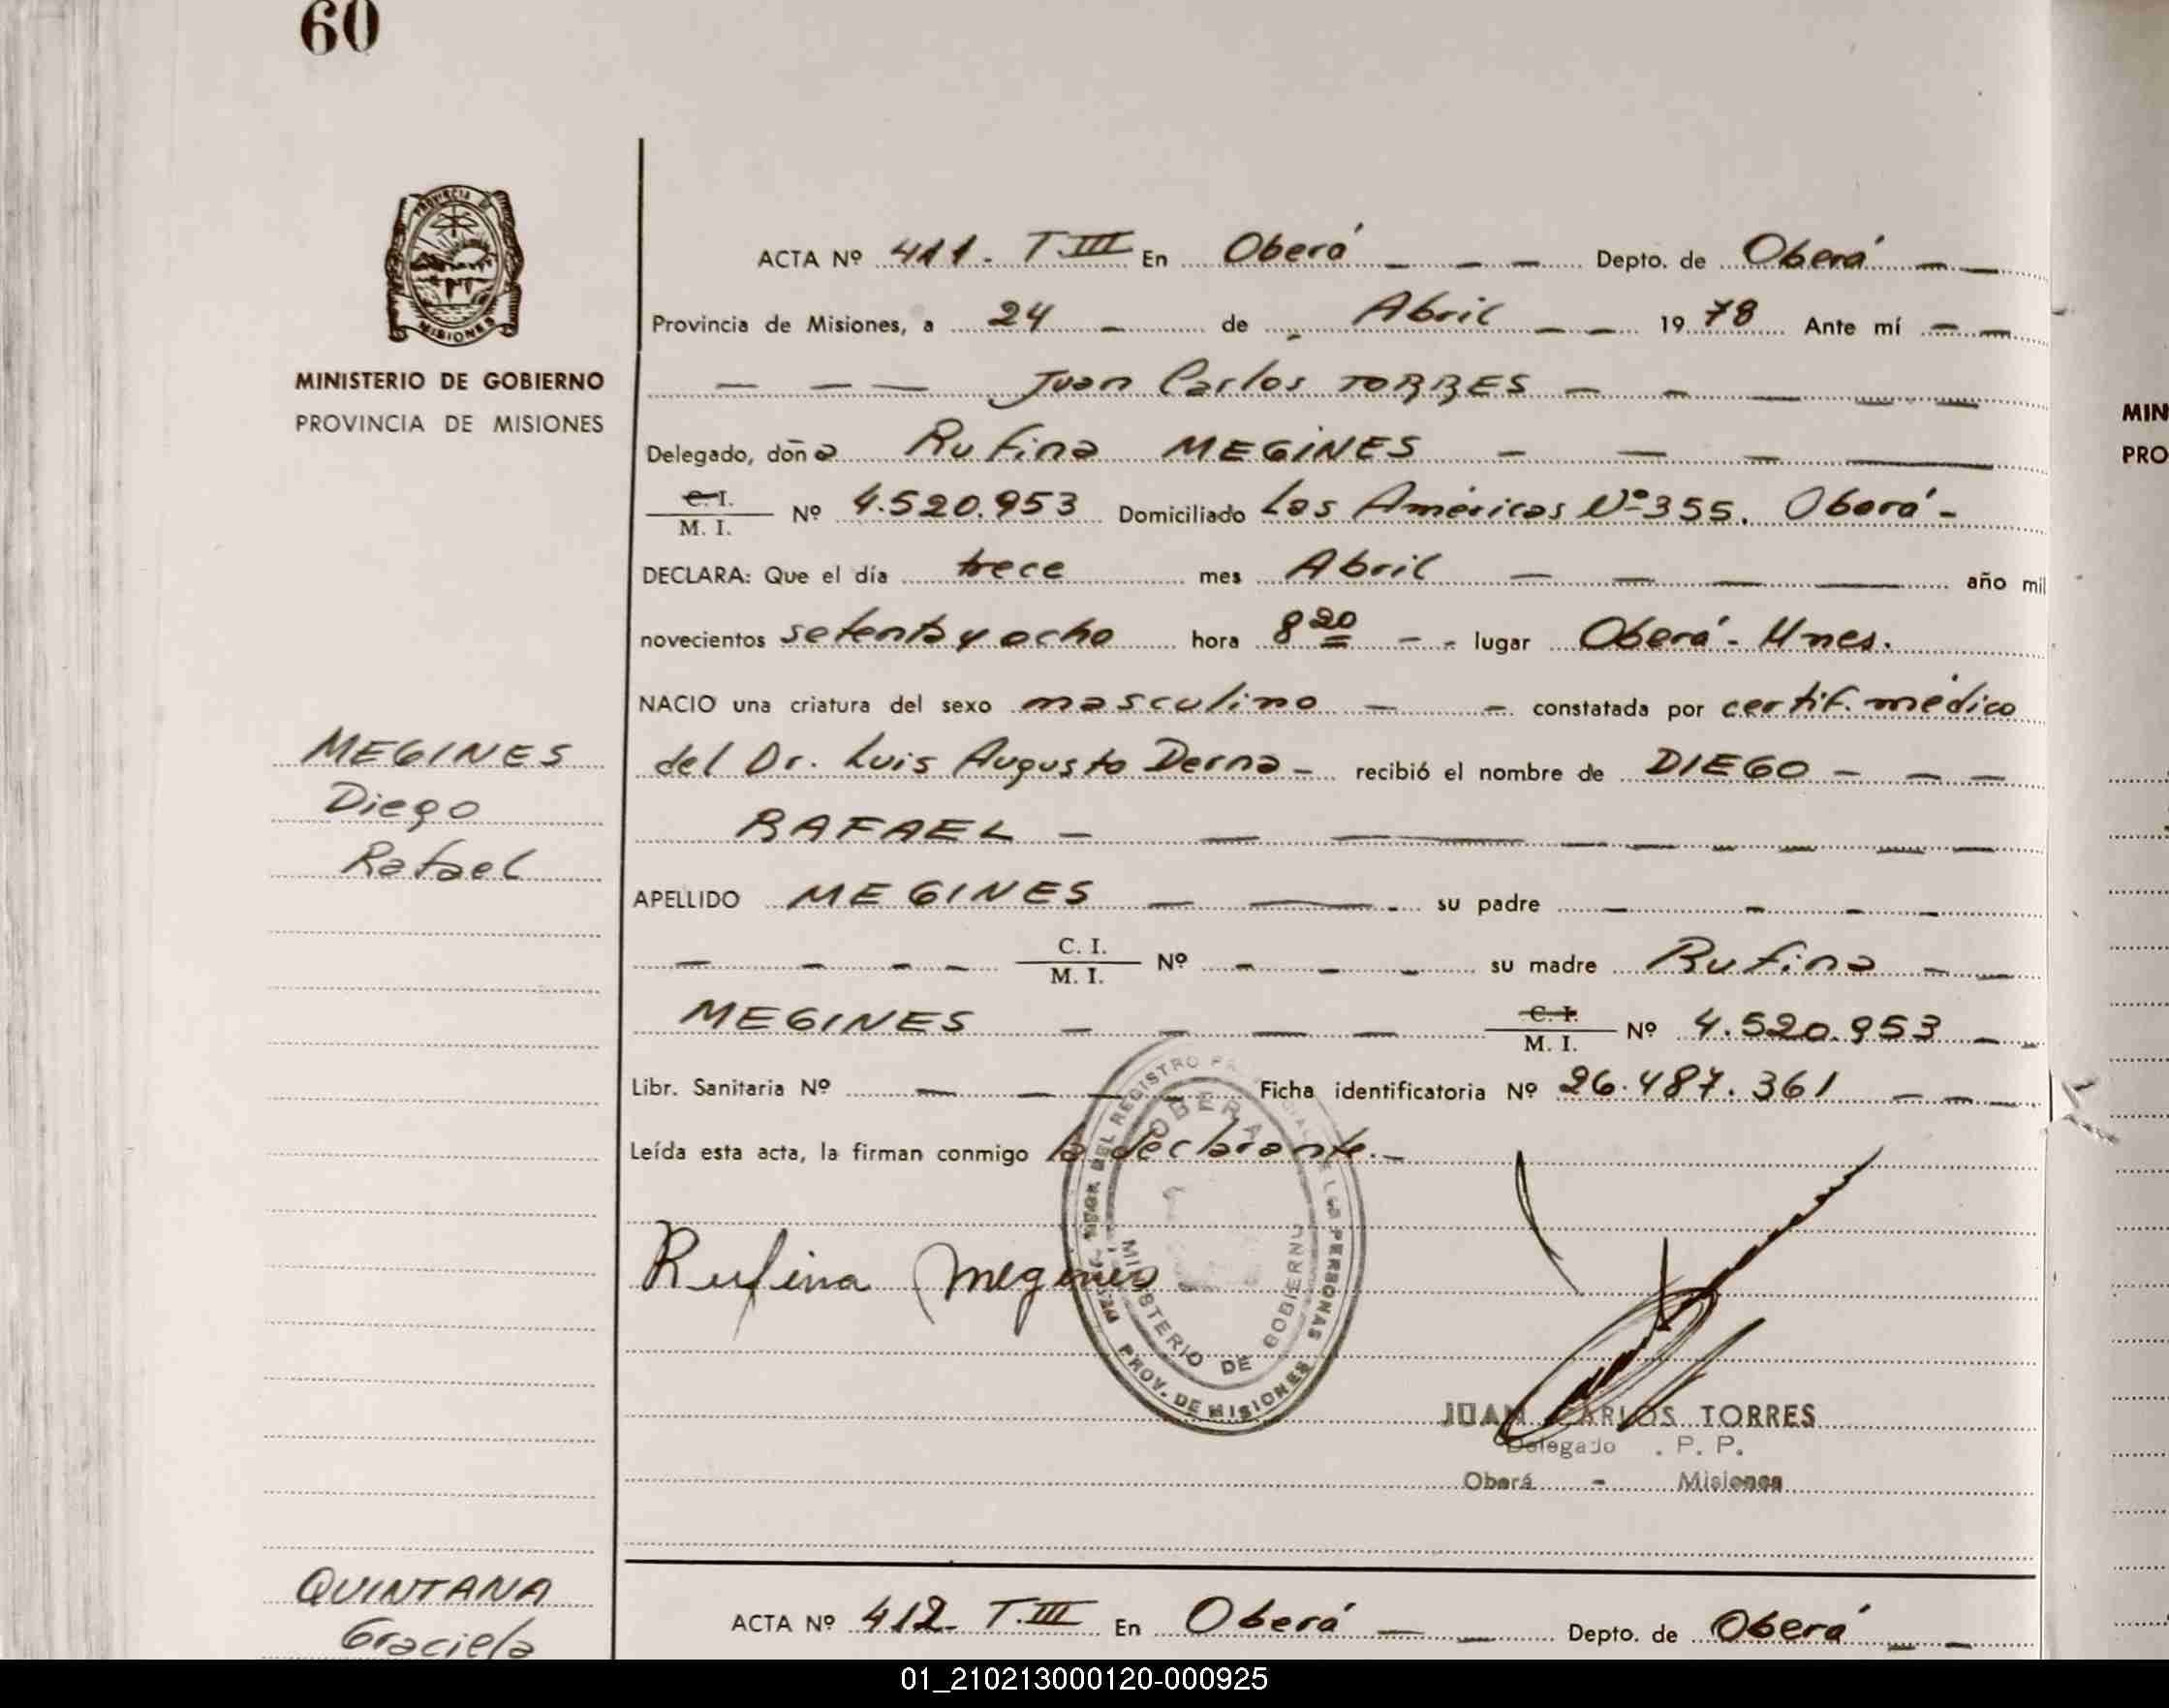 60
PROVINCIA DE
MISIONES
MINISTERIO DE GOBIERNO
PROVINCIA DE MISIONES
ACTA Nº 411. T.III En Oberá Depto. de Oberá
Provincia de Misiones, a 24 de Abril 1978 Ante mí
Juan Carlos TORRES
Delegado, doña Rufina MEGINES
C. I.
M. I. Nº 4.520.953 Domiciliado Las Américas Nº 355. Oberá
DECLARA: Que el día trece mes Abril año mil
novecientos setenta y ocho hora 8 20 lugar Oberá - Mnes.
NACIO una criatura del sexo masculino constatada por certif. médico
del Dr. Luis Augusto Derna recibió el nombre de DIEGO
RAFAEL
APELLIDO MEGINES su padre
C. I.
M. I. Nº su madre Rufina
MEGINES C. I.
M. I. Nº 4.520.953
Libr. Sanitaria Nº Ficha identificatoria Nº 26.487.361
Leída esta acta, la firman conmigo la declarante.
Rufina Megines
MEGINES
Diego
Rafael
DEL REGISTRO DE LAS PERSONAS
OBERA
MINISTERIO DE GOBIERNO
PROV. DE MISIONES
JUAN CARLOS TORRES
Delegado . P. P.
Oberá - Misiones
QUINTANA
Graciela
ACTA Nº 412- T.III En Oberá Depto. de Oberá
MIN
PRO
01_210213000120-000925